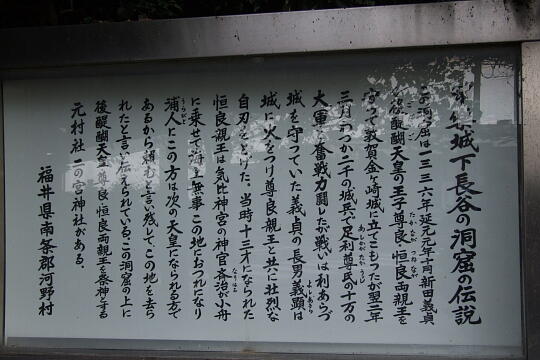 城下長谷の洞窟の伝説
この洞窟は一三三六年延元元年十月新田義貞
が後醍醐天皇の王子尊良恒良両親王を
守って敦賀金ヶ崎城に立てこもったが翌二年
三月わづか二千の城兵で足利尊氏の十万の
大軍と奮戦力闘したが戦いは利あらづ
城を守っていた義貞の長男義顕は
城に火をつけ尊良親王と共に壮烈な
自刃をとげた。当時十三才になられた
恒良親王は気比神宮の神官斉治が小舟
に乗せて海上無事この地におつれになり
浦人にこの方は次の天皇になられる方で
あるから頼むと言い残して、この地を去ら
れたと言い伝えられている、この洞窟の上に
後醍醐天皇尊良恒良両親王を祭神とする
元村社一の宮神社がある。
福井県南条郡河野村